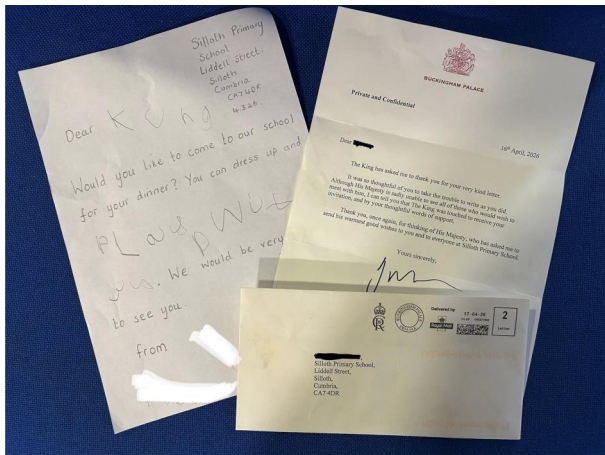 Silloth Primary
School
Liddell Street.
Silloth
Cumbria
CA7 4DR
4.3.26.
Dear King
Would you like to come to our school
for your dinner? You can dress up and
Play with
us. We would be very
to see you
from
BUCKINGHAM PALACE
Private and Confidential
16th April, 2026
Dear
The King has asked me to thank you for your very kind letter.
It was so thoughtful of you to take the trouble to write as you did.
Although His Majesty is sadly unable to see all of those who would wish to
meet with him, I can tell you that The King was touched to receive your
invitation, and by your thoughtful words of support.
Thank you, once again, for thinking of His Majesty, who has asked me to
send his warmest good wishes to you and to everyone at Silloth Primary School.
Yours sincerely,
Delivered by
Royal Mail
17-04-26
2
Silloth Primary School,
Liddell Street,
Silloth,
Cumbria,
CA7 4DR